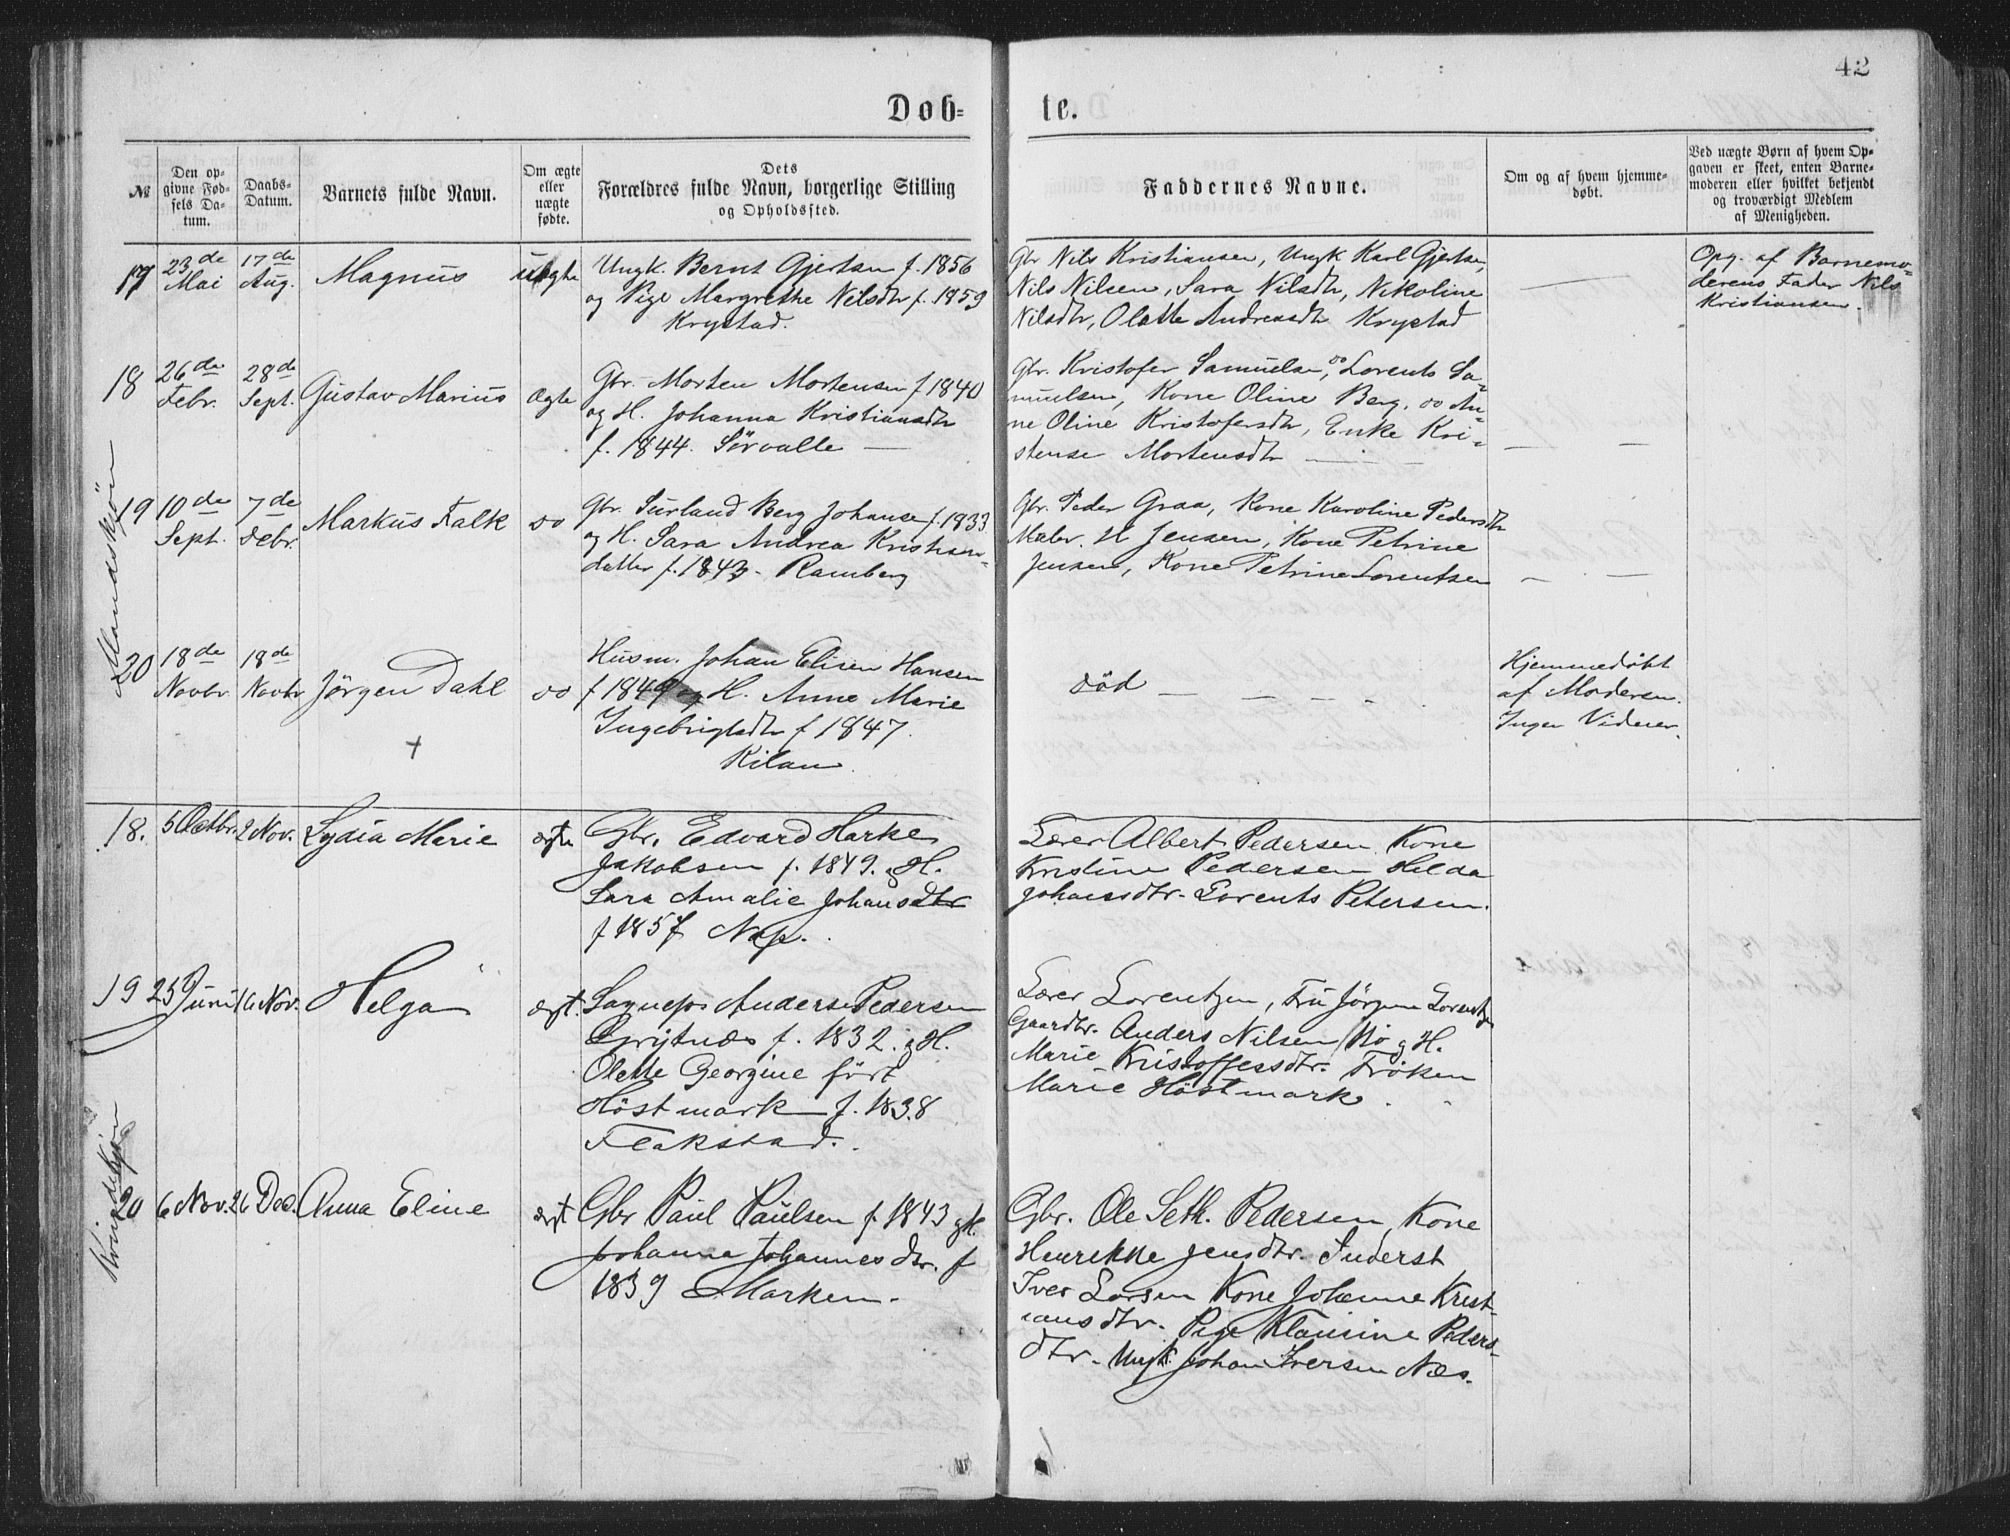 42
Døb= te.
№
Den op-
givne Fød-
sels Da-
tum.
Daabs-
Datum.
Barnets fulde Navn.
Om ægte
eller
uægte
fødte.
Dets
Forældres fulde Navn, borgerlige Stilling
og Opholdssted.
Faddernes Navne.
Om og af hvem hjemme-
døbt.
Ved uægte Børn af hvem Op-
gaven er skeet, enten Barne-
moderen eller hvilket bekjendt
og troværdigt Medlem
af Menigheden.
Mandskjön
17
23de
Mai
17de
Aug.
Magnus
uægte
Ungk. Bernt Gjertsen f. 1856
og Pige Margrethe Nilsdtr f. 1859
Krystad.
Gbr Nils Kristiansen, Ungk. Karl Gjertsen,
Nils Nilsen, Sara Nilsdtr, Nikoline
Nilsdtr, Olette Andreasdtr Krystad
Opg. af Barnemo-
derens Fader Nils
Kristiansen.
18
26de
Febr.
28de
Sept.
Gustav Marius
Ægte
Gbr. Morten Mortensen f 1840
og H. Johanna Kristiansdtr
f. 1844. Sörvalle —
Gbr. Kristofer Samuelsen, do Lorents Sa-
muelsen, Kone Oline Berg, do An-
ne Oline Kristofersdtr, Enke Kri-
stense Mortensdtr
19
10de
Sept.
7de
Debr.
Markus Falk
do
Gbr. Surland Berg Johansen f. 1833
og H. Sara Andrea Kristian-
datter f. 1843. Ramberg
Gbr. Peder Graa, Kone Karoline Pedersdtr
Maler H Jensen, Kone Petrine
Jensen, Kone Petrine Lorentsen
20
18de
Novbr
18de
Novbr
Jörgen Dahl
+
do
Husm. Johan Elisen Hansen
f 1849 og H. Anne Marie
Ingebrigtsdtr f 1847.
Kilan
död — — — —
Hjemmedøbt
af Moderen.
Ingen Vidner.
Kvindekjön
18.
5 Octbr.
2 Nov.
Lydia Marie
ægte
Gbr. Edvard Harke
Jakobsen f. 1849. og H.
Sara Amalie Johansdtr
f 1857 Nap.
Lærer Albert Pedersen Kone
Kristine Pedersen Hilda
Johansdtr. Lorents Petersen.
19
25 Juni
16 Nov.
Helga
ægt.
Sogneps Anders Pedersen
Grýtnæs f. 1832. og H.
Olette Georgine född
Höstmark f. 1838
Flakstad.
Lærer Lorentzen, Fru Jörgine Lorentzen
Gaardbr. Anders Nilsen Mo og H.
Marie Kristoffersdtr. Fröken
Marie Höstmark.
20
6 Nov.
26 Dec.
Anna Eline
ægt
Gbr Paul Paulsen f. 1843 og H.
Johanna Johannesdtr. f
1839 Marken.
Gbr. Ole Seth. Pedersen, Kone
Henrikke Jensdtr. Inderst
Iver Larsen Kone Johanne Krist-
iansdtr. Pige Klausine Peders-
dtr. Ungk. Johan Iversen Næs.